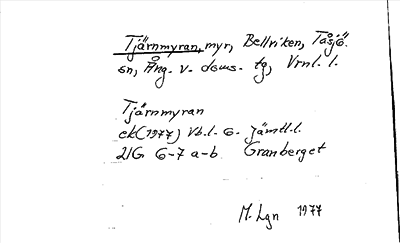 Tjärnmyran, myr, Bellviken, Tåsjö.
sn, Ång. v. doms. tg, Vrnl. l.
Tjärnmyran
ek(1977) Vb.l. o. Jämtl.l.
21G 6-7 a-b Granberget
M. Lgn 1977